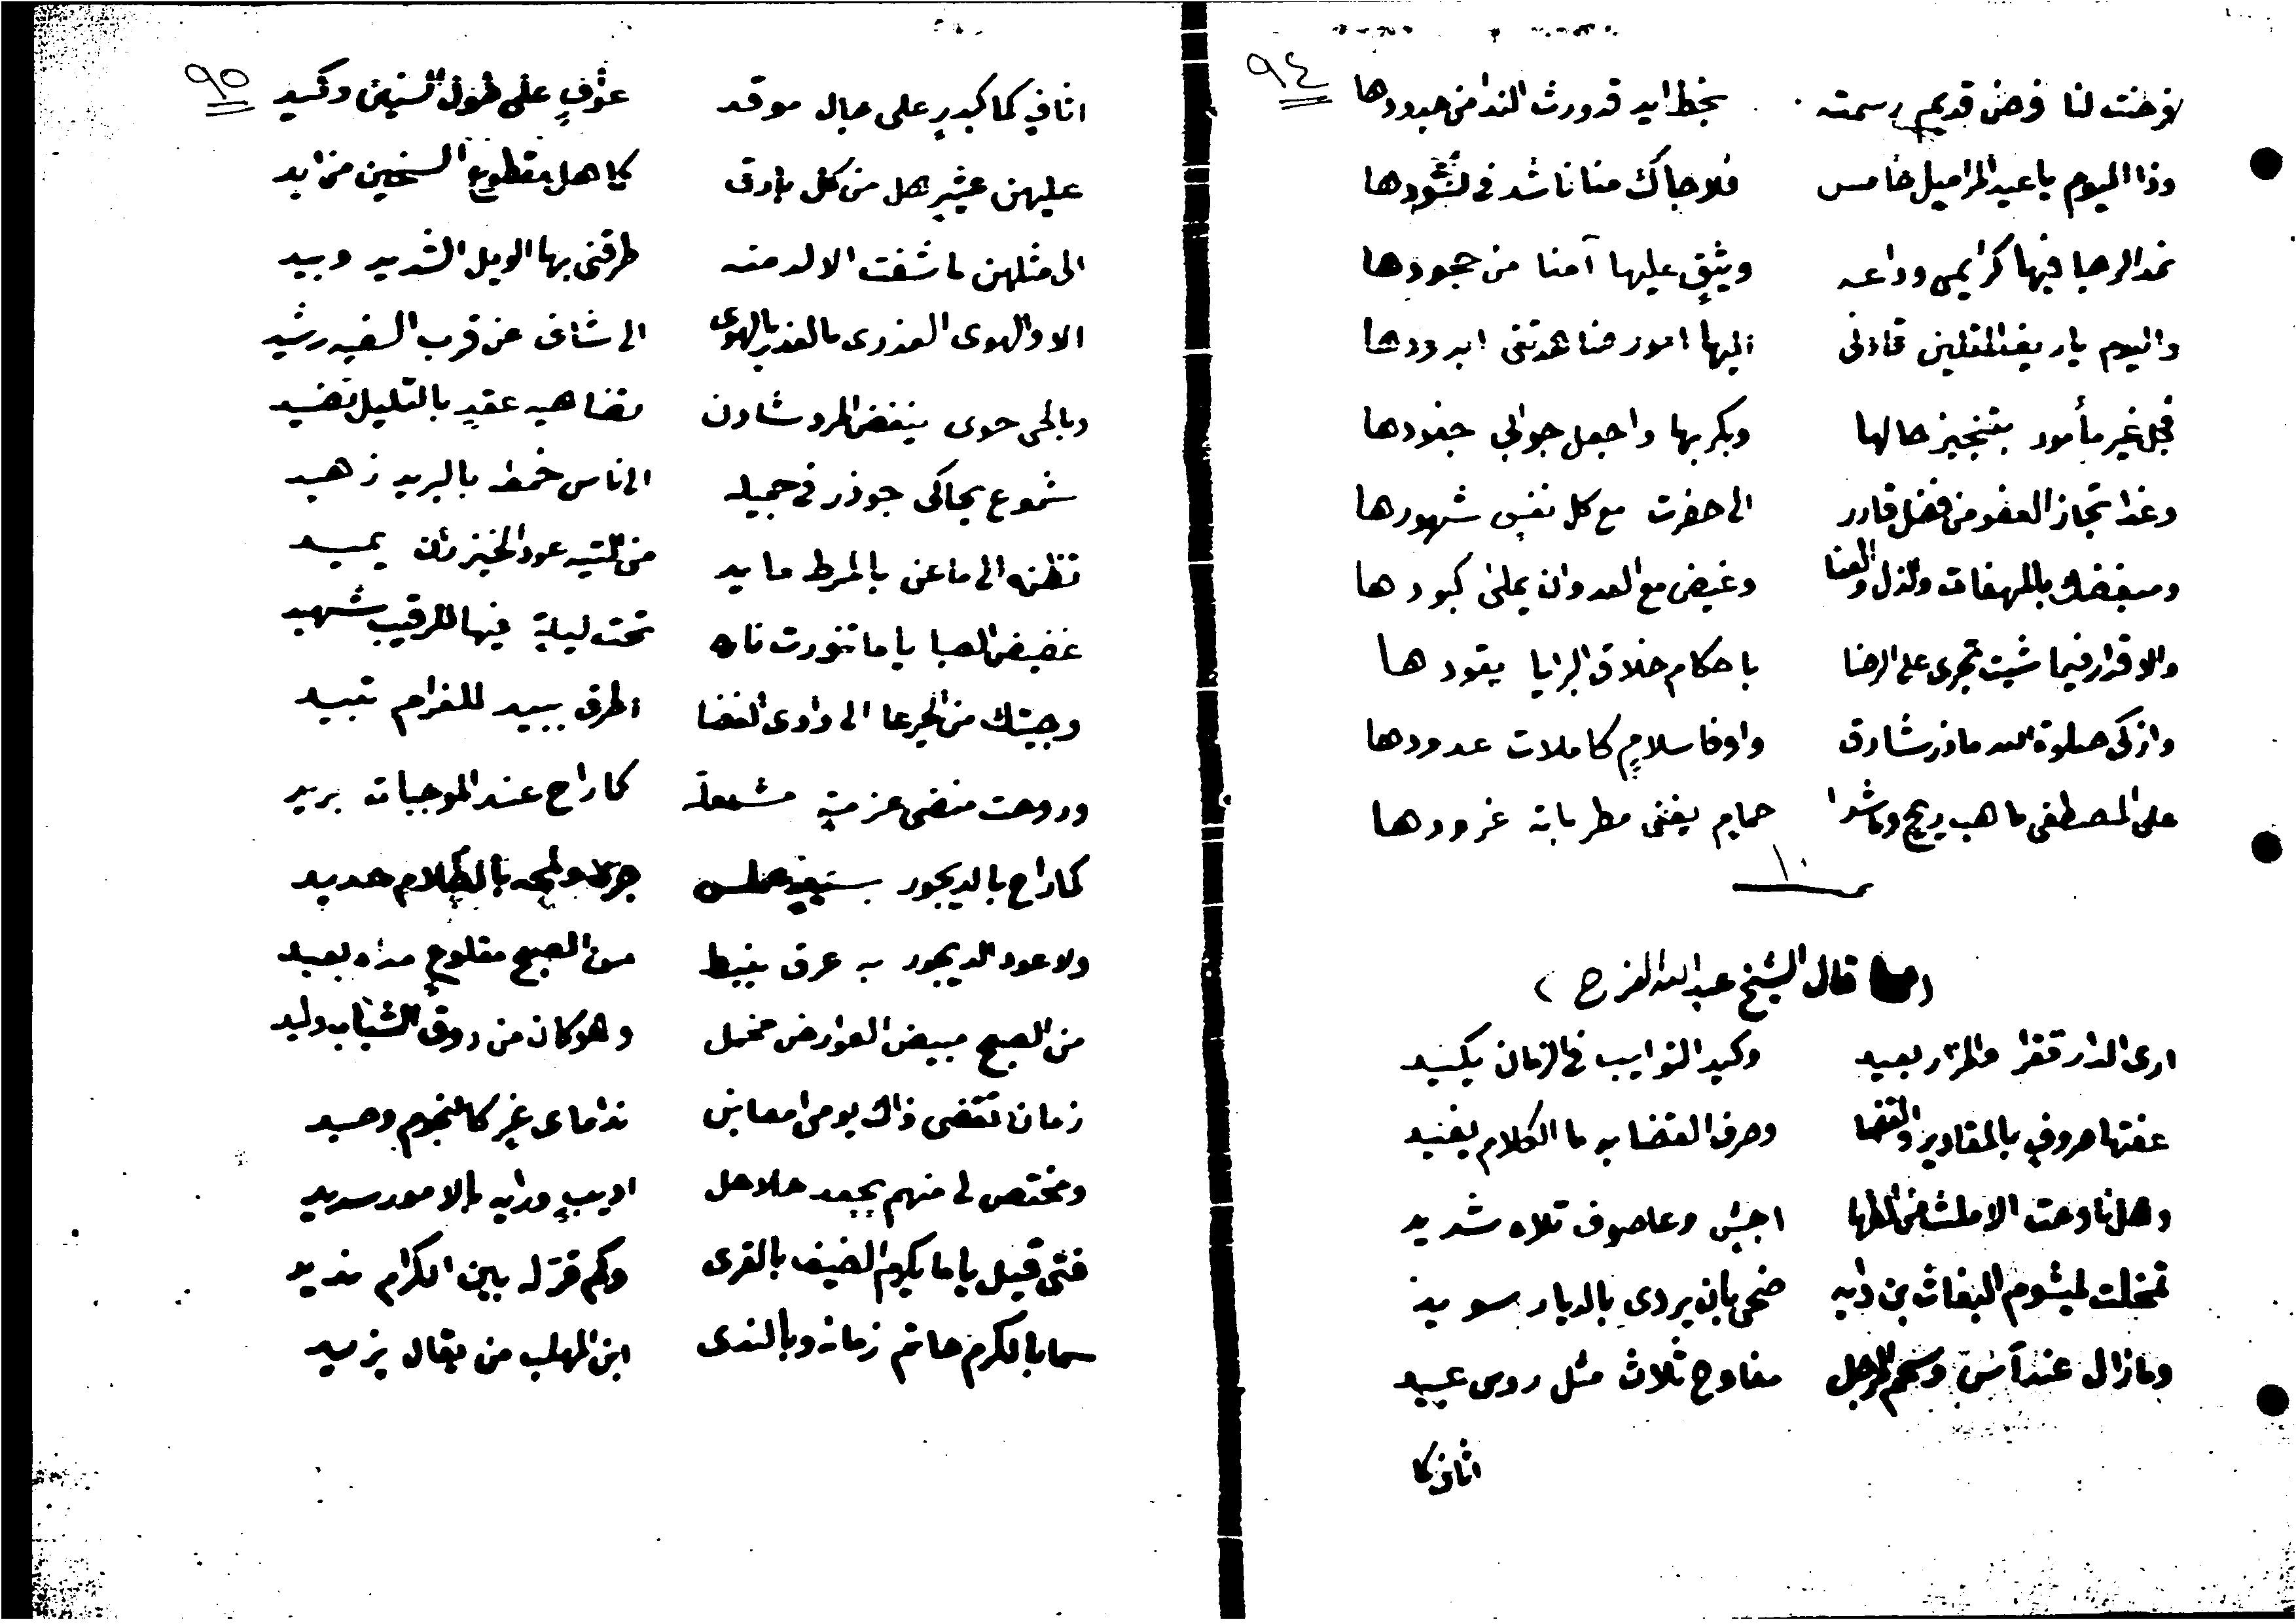 ٩٤
فرضت لنا فرض قديم رسمته بخط ايد قد ورث الندا من جدودها
وذا اليوم يا عيد المراميل خامس فلا جاك منا ناشد في نشودها
نمد الرجا فيها كرايم وداعه ويثق عليها آمنا من جحودها
واليوم يا ريف المقلين قادني اليها امور ضاهدتني ابرودها
فجل غير مأمور بتنجيز حالها وبكر بها واجعل جوابي جفودها
وغدا تجاز العفو من فضل قادر الى حضرت مع كل نفس شهودها
ومبغضك بالمهفات والذل والعنا وغيض مع العدوان يملئ كبودها
والاقدار فيما شيت تجرى على الرضا باحكام خلاق البرايا يقودها
وازكى صلوة الله ماذر شارق واوفا سلامٍ كاملات عدودها
على المصطفى ما هب ريح وما شدا حمامٍ يغنى مطربات غرودها
١٠
( قال الشيخ عبدالله الفرج )
ارى الدار قفرا والمزار بعيد وكيد النوايب في الزمان يكيد
عفتها صروفٍ بالمقادير والقضا وصرف القضا به ما الكلام يفيد
اجشٍ وعاصوف تلاه شديد
ضحى بان يردى بالديار سويد
وما زال عند آس وسحم المرجل مفاوح ثلاث مثل روس عبيد
اثافٍ كا
٩٥
اثافيٍ كما كبديٍ على حيال موقد عوافٍ على طول السنين ركيد
عليهن عثيرٍ هل من كل بارق كما هل مقطوع السنين من ايد
الى مثلهن ما شفت الا لدمنه طرقنى بها الويل الشديد وبيد
الا والهوى العذرى ما الغدير بالهوى الى شاف عن قرب السفيه رشيد
وبالحى حوى ينفض المرد شادن تضاهيه عقدٍ بالتليل نضيد
شموع يحاكى جوذر في جميله الى ناس خمط بالبريد زهيد
تظنه الى ما عن بالمرط مايد من التيه عود الخيزران يميد
غضيض الصبا ياما تنورت ناره تحت ليلةٍ فيها الرقيب شهيد
وجيتك من الجرعا الى وادى الغضا اطرق ببيد للغرام تبيد
وروحت منضى عزمتٍ مشمعلة كما راح عند الموجبات بريد
كما راح بالديجور بالظلام حديد
ولا عود الديجور به عرق ينبط من الصبح مقلوعٍ مداه بعيد
من الصبح مبيض العوارض مخمل وهو كان من روق الشباب وليد
زمان تقضى ذاك يومى امعاين نداماى غرٍ كالنجوم وحيد
ومختص لى منهم بجعد حلاحل اديبٍ ورايه بالامور سديد
فتى قيل ياما يكرم الضيف بالقرى وكم قرّ له بين الكرام نديد
سما بالكرم حاتم زمانه وبالندى ابن المهلب من يقال يزيد